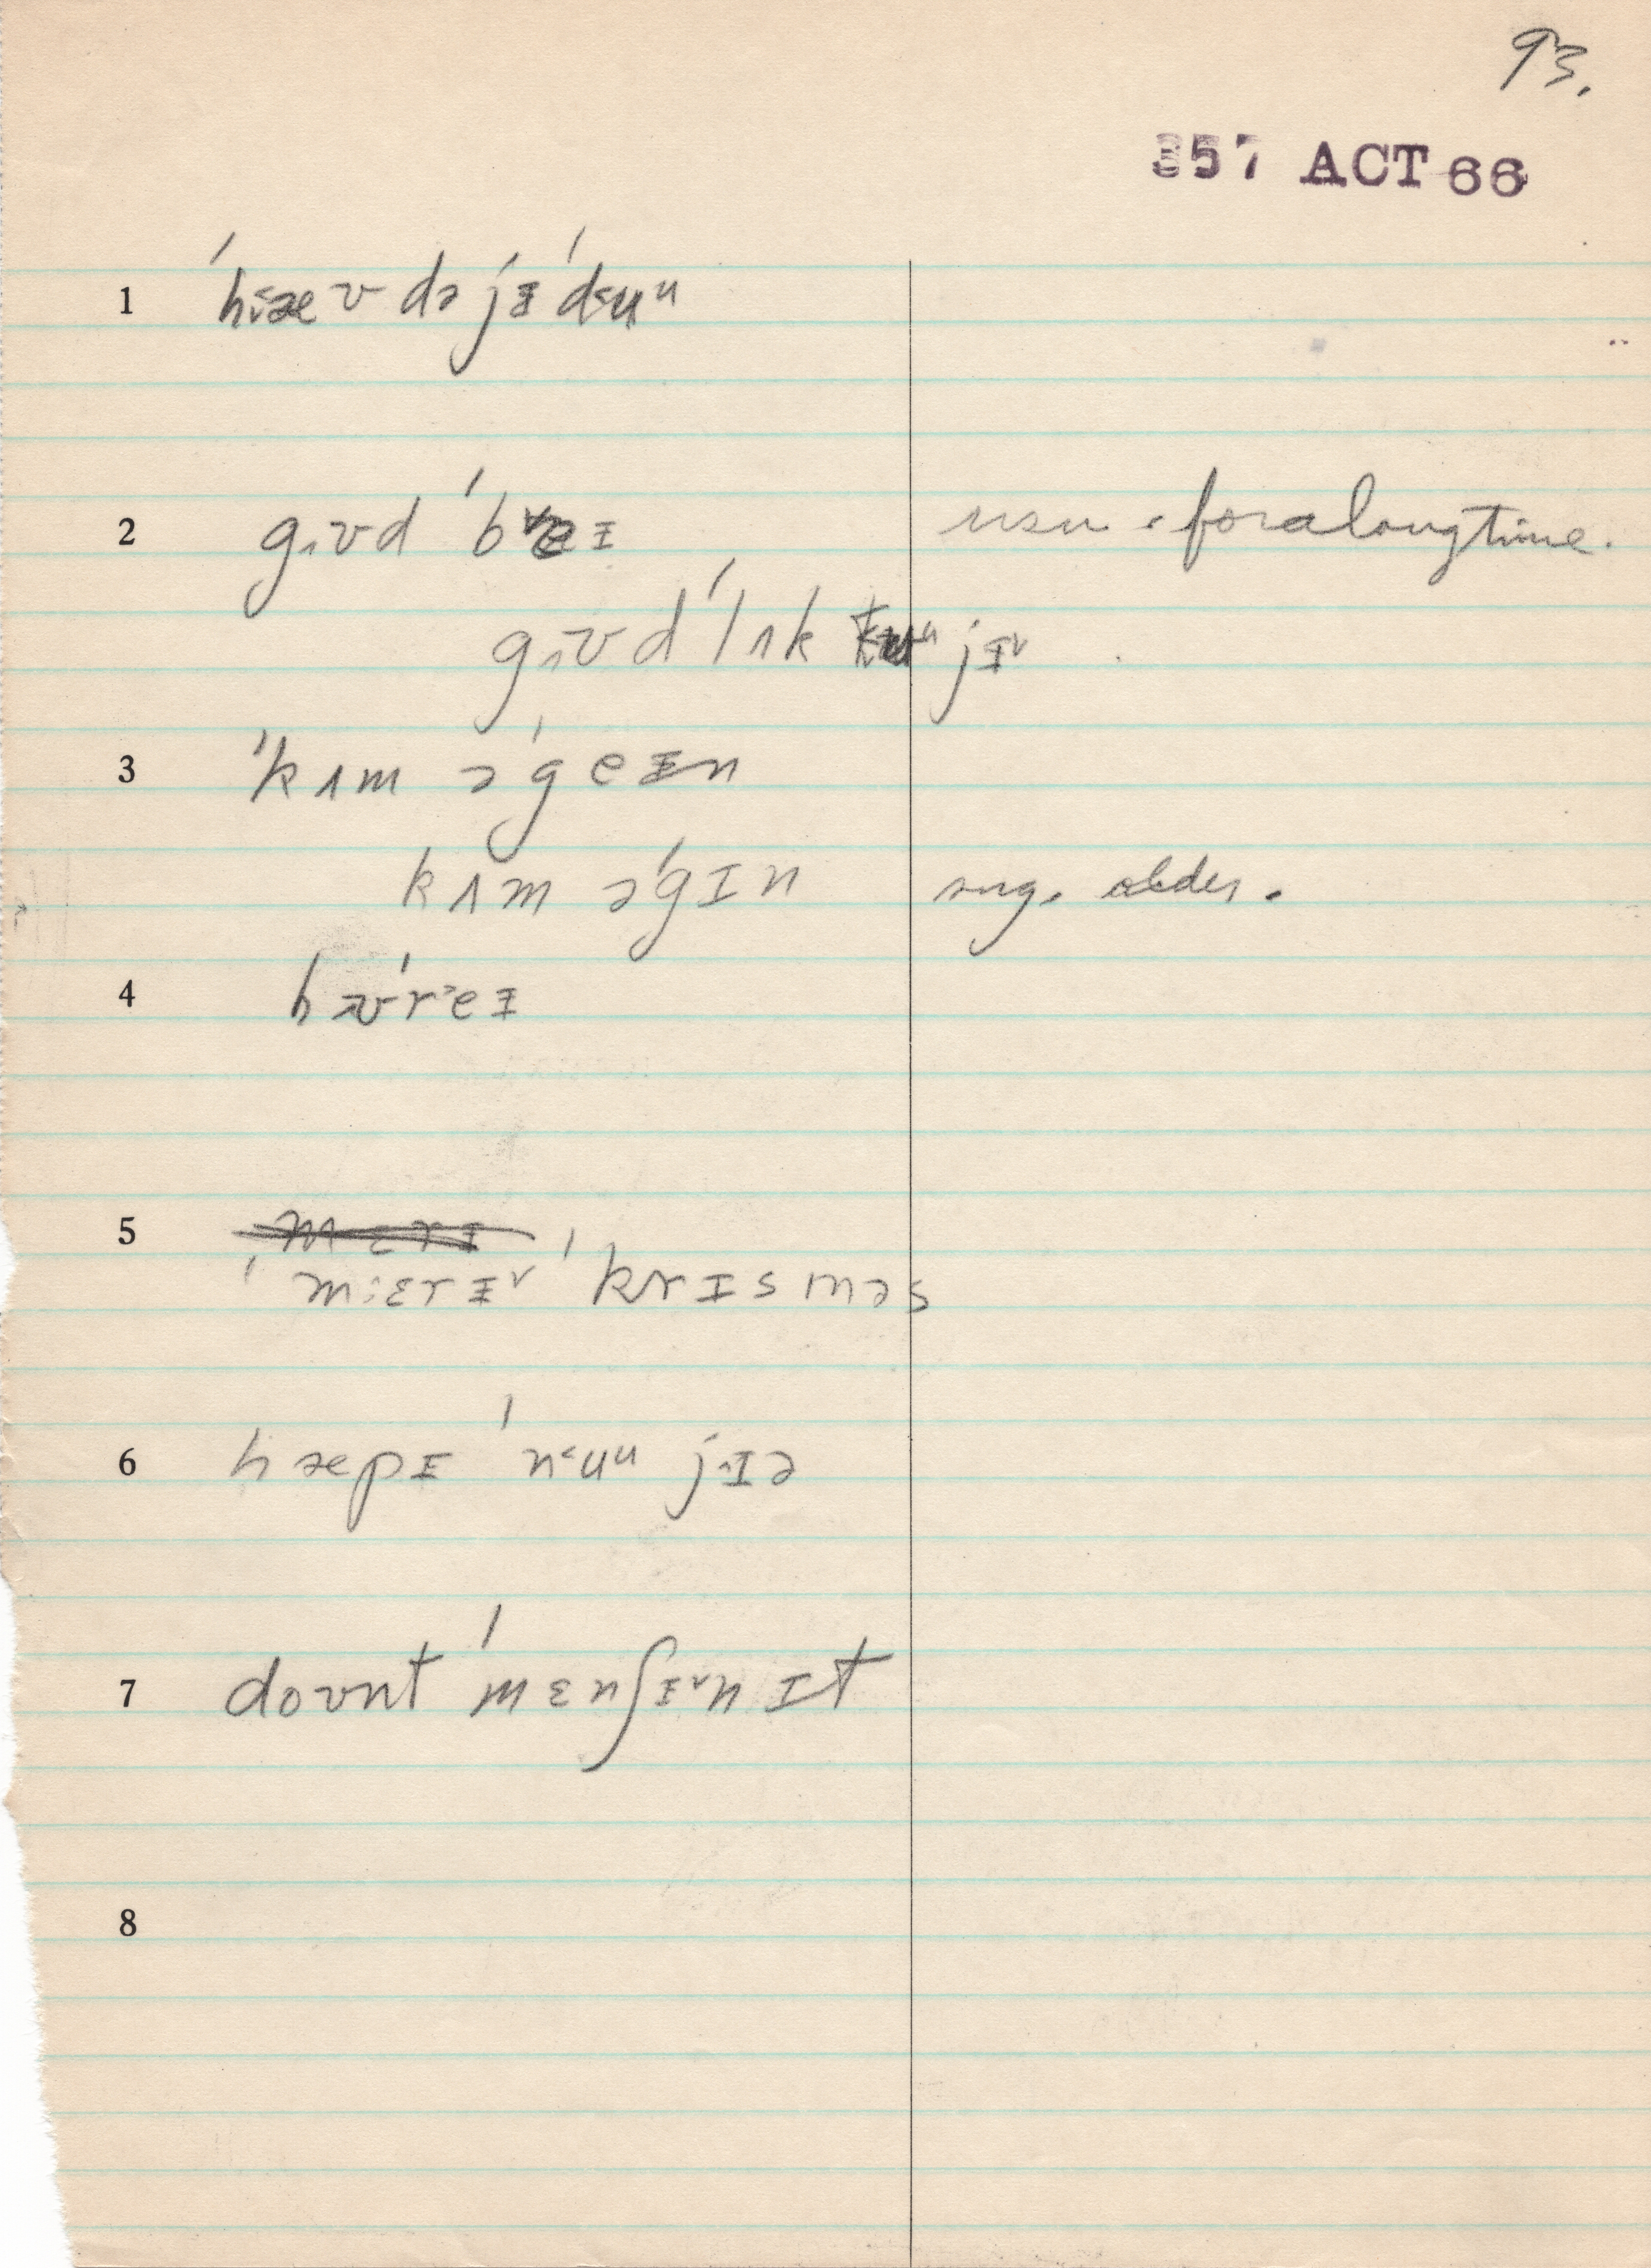 93.
357 ACT 66
1 ˈh‹æʊ də jɨ ˈd‹ʉᵘ
2 gʊd ˈbɐɪ usu. for a long time.
gʊd ˈlʌk tʉᵘ jɨˇ
3 ˈkʌm əˈgeɨn
kʌm əˈgɪn sug. older.
4 hʊˈreɨ
5 mɛrɨ
ˈmɛrɨˇ ˈkrɪsməs
6 hæpɨ ˈn‹uᵘ jɪə
7 doʊnt ˈmɛnʃɨˇn ɪt
8